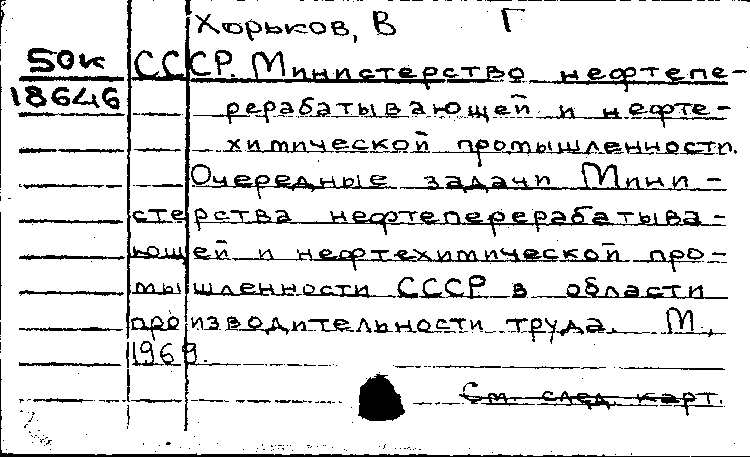 Хорьков, В Г
50к СССР. Министерство нефтепе-
18646 рерабатывающей и нефте-
химической промышленности.
Очередные задачи Мини-
стерства нефтеперерабатыва-
ющей и нефтехимической про-
мышленности СССР в области
производительности труда. М.,
1969.
См. след. карт.